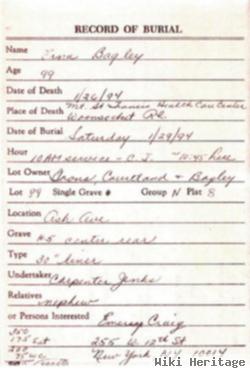 RECORD OF BURIAL
Name Erna Bagley
Age 99
Date of Death 1/26/94
Mt. St Francis Health Care Center
Place of Death Woonsocket R.I.
Date of Burial Saturday 1/29/94
Hour 10 AM service - C.J. 10:45 here
Lot Owner Courtland + Bagley
Lot 99 Single Grave # Group N Plat 8
Location Ash Ave
Grave #5 center rear
Type 30" liner
Undertaker Carpenter Jenks
Relatives nephew
or Persons Interested Emery Craig
350
175 Sat 255 W. 12th St
New York N.Y. 10014
Wiki Heritage